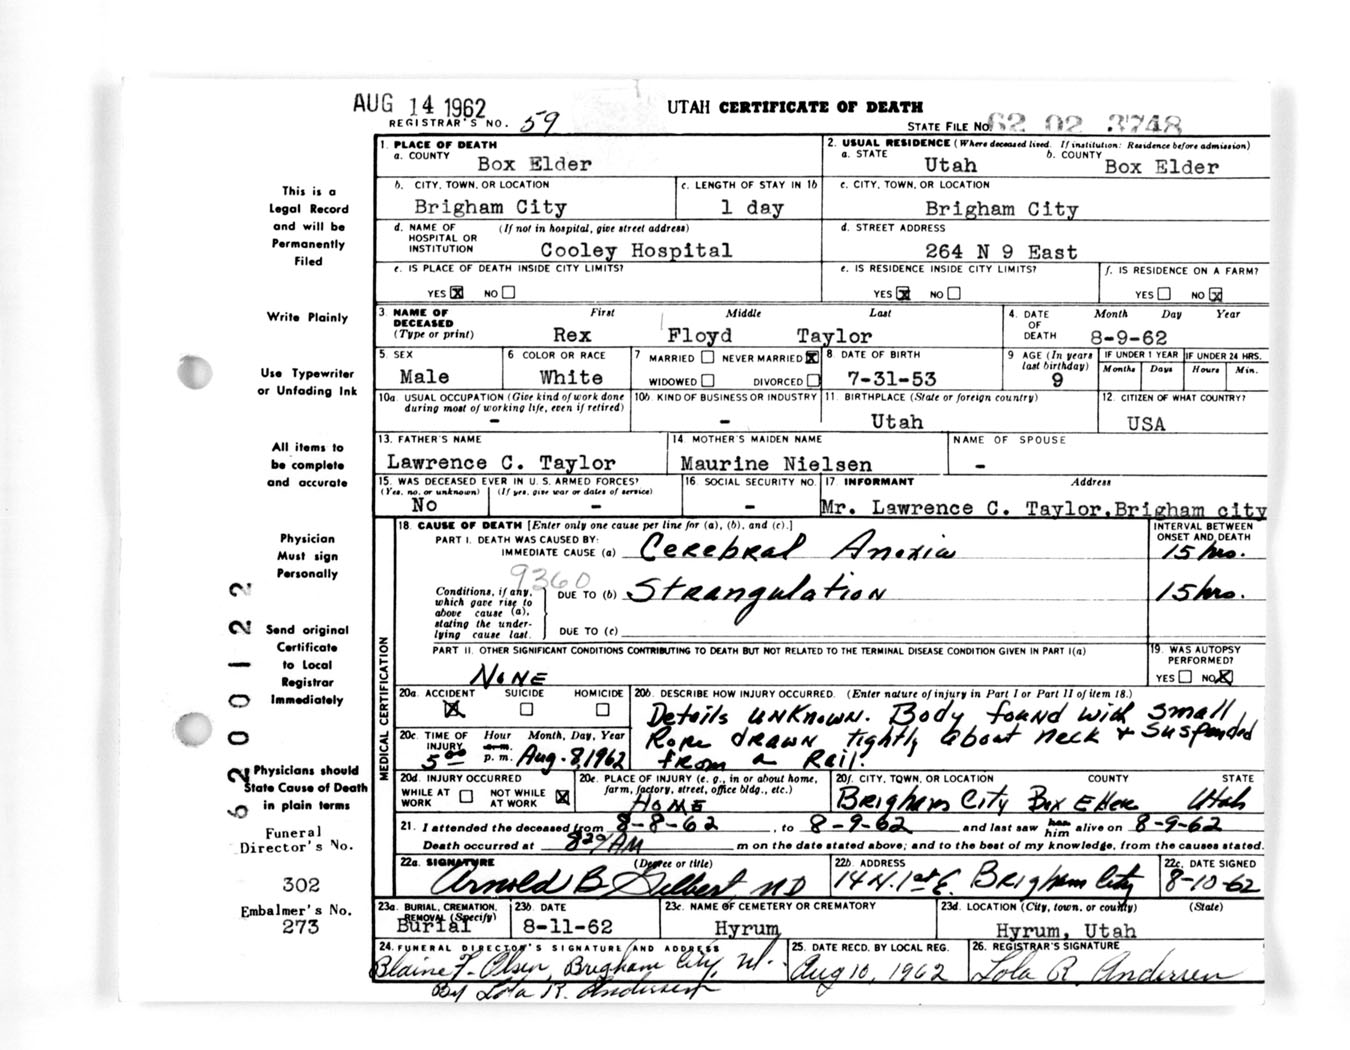 AUG 14 1962
UTAH CERTIFICATE OF DEATH
REGISTRAR'S NO. 59
STATE FILE NO. 62 02 3748
1. PLACE OF DEATH
a. COUNTY Box Elder
2. USUAL RESIDENCE (Where deceased lived. If institution: Residence before admission)
a. STATE Utah b. COUNTY Box Elder
b. CITY, TOWN, OR LOCATION Brigham City
c. LENGTH OF STAY IN 1b 1 day
c. CITY, TOWN, OR LOCATION Brigham City
d. NAME OF HOSPITAL OR INSTITUTION (If not in hospital, give street address) Cooley Hospital
d. STREET ADDRESS 264 N 9 East
e. IS PLACE OF DEATH INSIDE CITY LIMITS?
YES X NO
e. IS RESIDENCE INSIDE CITY LIMITS?
YES X NO
f. IS RESIDENCE ON A FARM?
YES NO X
3. NAME OF DECEASED (Type or print) First Middle Last
Rex Floyd Taylor
4. DATE OF DEATH Month Day Year
8-9-62
5. SEX Male
6 COLOR OR RACE White
7 MARRIED NEVER MARRIED X
WIDOWED DIVORCED
8. DATE OF BIRTH 7-31-53
9 AGE (In years last birthday) 9
IF UNDER 1 YEAR Months Days
IF UNDER 24 HRS. Hours Min.
10a. USUAL OCCUPATION (Give kind of work done during most of working life, even if retired) -
10b. KIND OF BUSINESS OR INDUSTRY -
11. BIRTHPLACE (State or foreign country) Utah
12. CITIZEN OF WHAT COUNTRY? USA
13. FATHER'S NAME Lawrence C. Taylor
14. MOTHER'S MAIDEN NAME Maurine Nielsen
NAME OF SPOUSE -
15. WAS DECEASED EVER IN U. S. ARMED FORCES?
(Yes, no, or unknown) (If yes, give war or dates of service)
No -
16. SOCIAL SECURITY NO. -
17. INFORMANT Address
Mr. Lawrence C. Taylor, Brigham city
18. CAUSE OF DEATH [Enter only one cause per line for (a), (b), and (c).]
INTERVAL BETWEEN ONSET AND DEATH
PART I. DEATH WAS CAUSED BY:
IMMEDIATE CAUSE (a) Cerebral Anoxia 15 hrs.
9360
Conditions, if any, which gave rise to above cause (a), stating the underlying cause last.
DUE TO (b) Strangulation 15 hrs.
DUE TO (c)
PART II. OTHER SIGNIFICANT CONDITIONS CONTRIBUTING TO DEATH BUT NOT RELATED TO THE TERMINAL DISEASE CONDITION GIVEN IN PART I(a)
None
19. WAS AUTOPSY PERFORMED?
YES NO X
MEDICAL CERTIFICATION
20a. ACCIDENT X SUICIDE HOMICIDE
20b. DESCRIBE HOW INJURY OCCURRED. (Enter nature of injury in Part I or Part II of item 18.)
Details unknown. Body found with small
Rope drawn tightly about neck & suspended
from a Rail.
20c. TIME OF INJURY Hour Month, Day, Year
a.m.
5 00 p. m. Aug. 8, 1962
20d. INJURY OCCURRED
WHILE AT WORK NOT WHILE AT WORK X
20e. PLACE OF INJURY (e. g., in or about home, farm, factory, street, office bldg., etc.)
Home
20f. CITY, TOWN, OR LOCATION COUNTY STATE
Brigham City Box Elder Utah
21. I attended the deceased from 8-8-62, to 8-9-62 and last saw her him alive on 8-9-62
Death occurred at 8 20 AM m on the date stated above; and to the best of my knowledge, from the causes stated.
22a. SIGNATURE (Degree or title)
Arnold B Gilbert MD
22b. ADDRESS
14 N. 1st E. Brigham City
22c. DATE SIGNED
8-10-62
23a. BURIAL, CREMATION, REMOVAL (Specify)
Burial
23b. DATE
8-11-62
23c. NAME OF CEMETERY OR CREMATORY
Hyrum
23d. LOCATION (City, town, or county) (State)
Hyrum, Utah
24. FUNERAL DIRECTOR'S SIGNATURE AND ADDRESS
Blaine F. Olsen, Brigham City, Ut.
By Lola R. Andersen
25. DATE RECD. BY LOCAL REG.
Aug 10, 1962
26. REGISTRAR'S SIGNATURE
Lola R. Andersen
This is a
Legal Record
and will be
Permanently
Filed
Write Plainly
Use Typewriter
or Unfading Ink
All items to
be complete
and accurate
Physician
Must sign
Personally
Send original
Certificate
to Local
Registrar
Immediately
Physicians should
State Cause of Death
in plain terms
Funeral
Director's No.
302
Embalmer's No.
273
62 00122